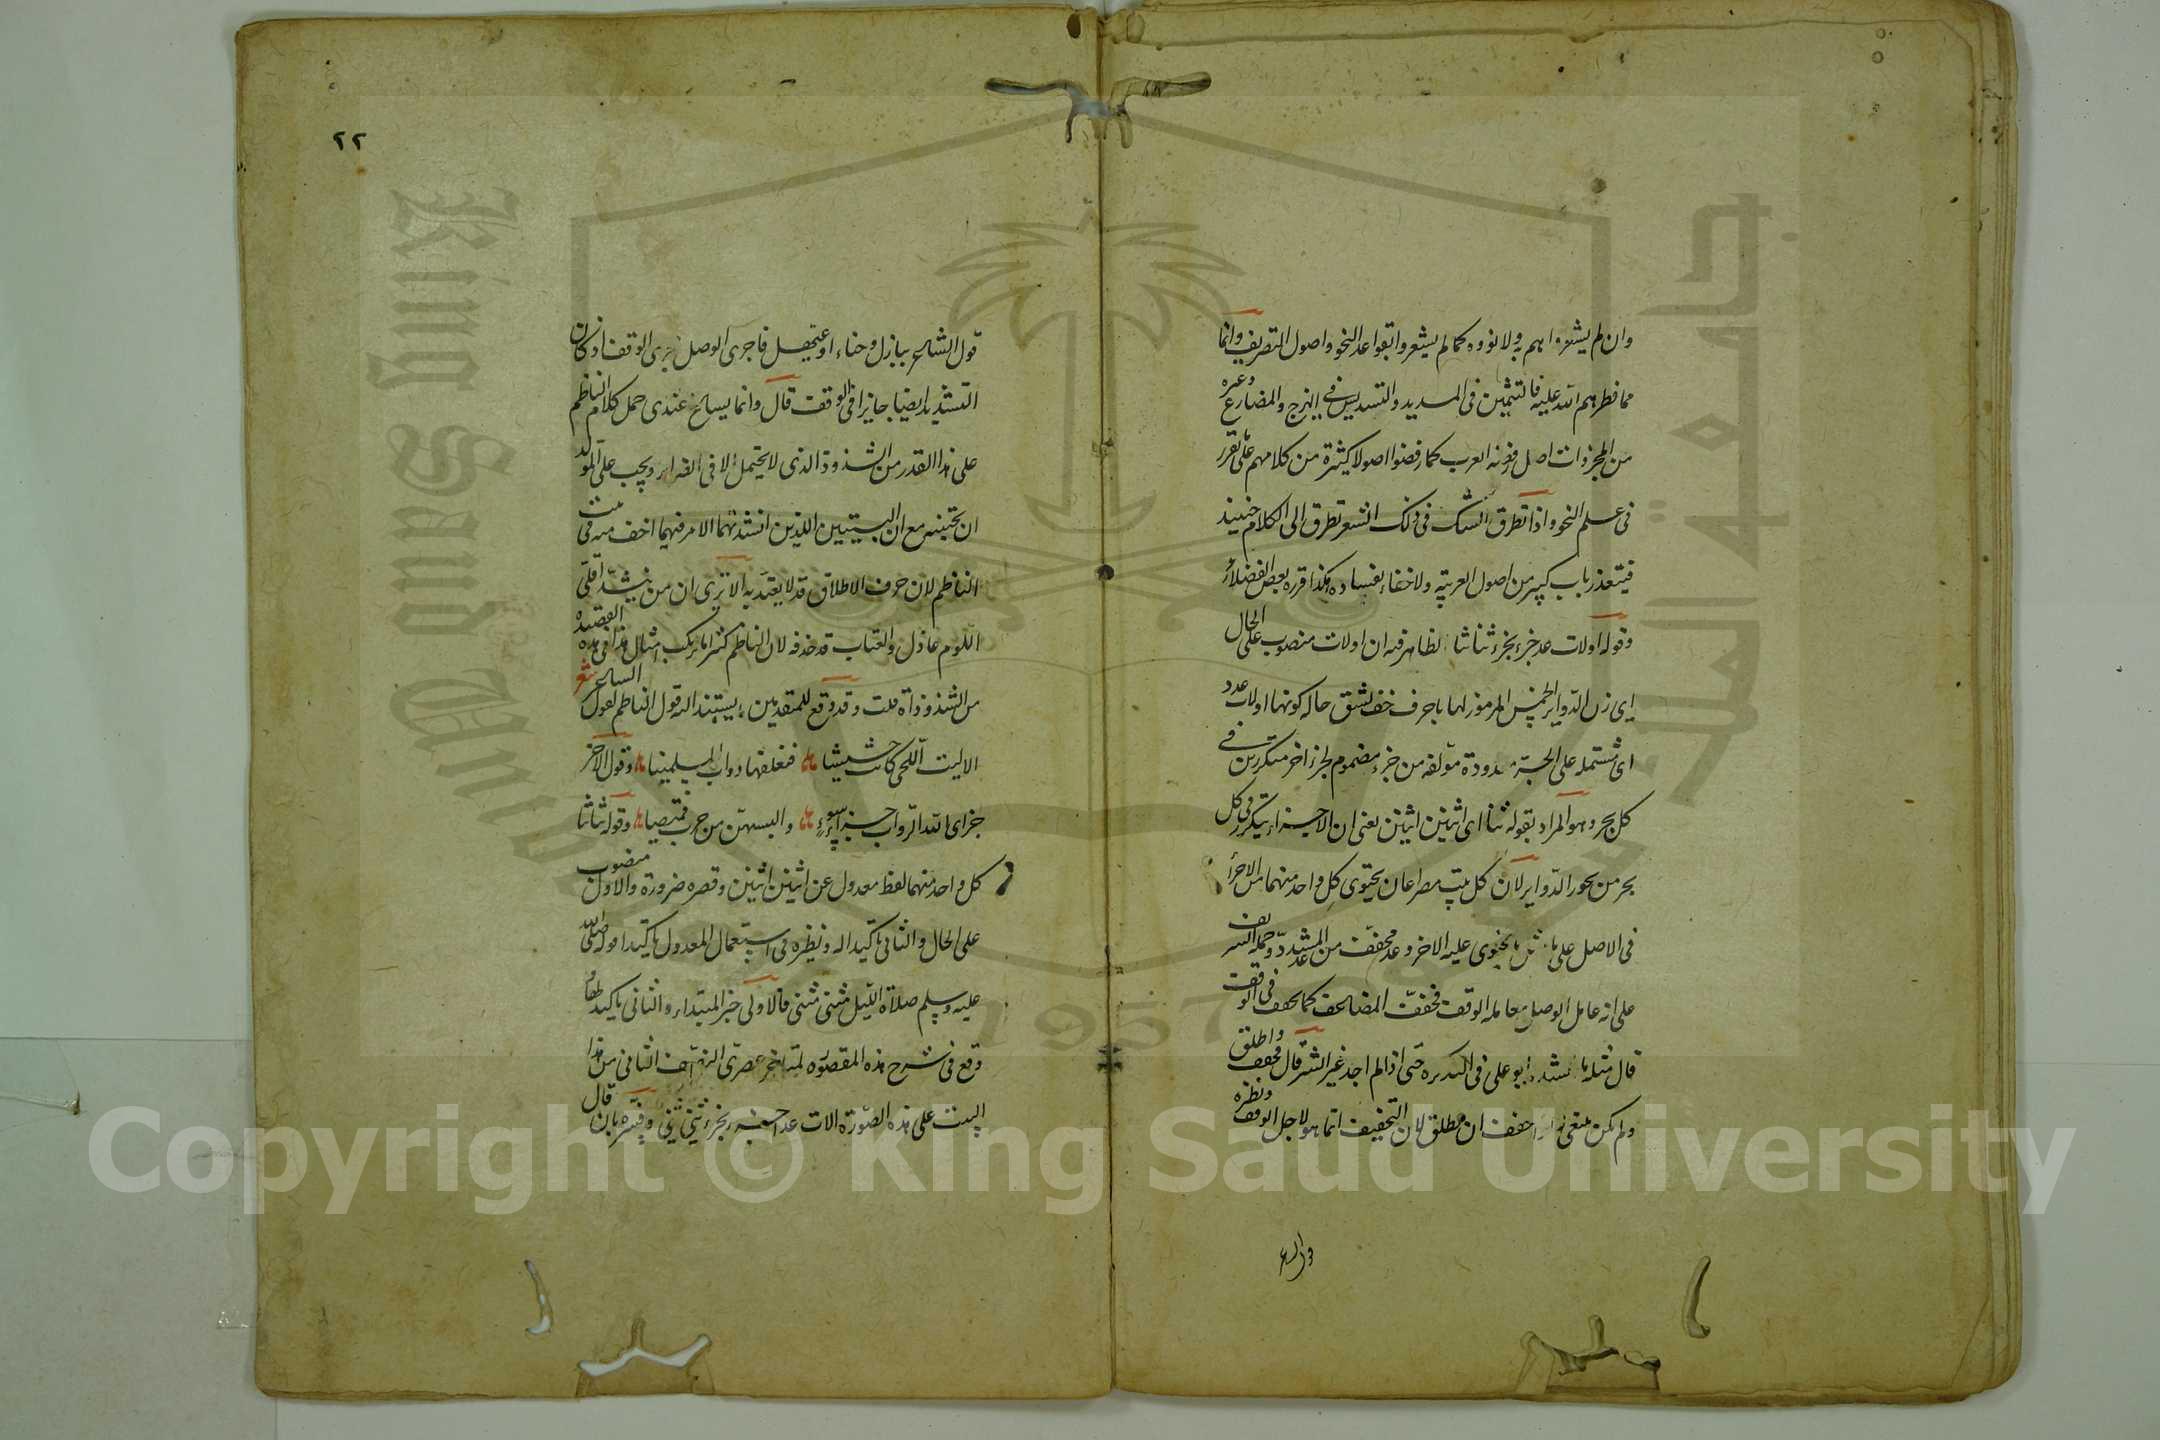 وان لم يشعروا هم به ولا نووه كما لم يشعروا بقواعد النحو واصول التصريف وانما
مما فطرهم الله عليه فالتثمين فى المديد والتسديس فى الهزج والمضارع وغيره
من المجزوات اصل رفضه العرب كما رفضوا اصولا كثيرة من كلامهم على تقرر
فى علم النحو واذا تطرق الشك فى ذلك الشعر تطرق الى الكلام حينئذ
فيتعذر باب كبير من اصول العربية ولا خفاء بفساده هكذا قرره بعض الفضلاء
وقوله اولات عد جزء بجزء ثنا ثنا الظاهر فيه ان اولات منصوب على الحال
اى زن الدواير الخمس المرموز لها باحرف خف لشق حالة كونها اولات عدد
اى مشتملة على ابحر معدودة مؤلفة من جزء مضموم لجزء اخر متكررين فى
كل بحر وهو المراد بقوله ثنا ثنا اى اثنين اثنين يعنى ان الاجزاء تتكرر فى كل
بحر من بحور الدواير لان كل بيت مصراعان يحتوى كل واحد منهما من الاجزاء
فى الاصل على مثل ما يحتوى عليه الاخر وعد مخفف من عد المشدد وحمله الشريف
على انه عامل الوصل معاملة الوقف فخفف المضاعف كما يخفف فى الوقف
قال مثله ما انشده ابو على فى التذكرة حتى اذا لم اجد غير الشر قال فخفف واطلق
ولم يكن ينبغى اذا خفف ان يطلق لان التخفيف انما هو لاجل الوقف ونظيره
قول الشاعر
٢٢
قول الشاعر ببازل وجناء او عيهل فاجرى الوصل مجرى الوقف اذ كان
التشديد ايضا جايزا فى الوقف قال وانما يسايخ عندى حمل كلام الناظم
على هذا القدر من الشذوذ الذى لا يحتمل الا فى الضراير ويجب على المولد
ان يجتنبه مع ان البيتين اللذين انشدتهما الامر فيهما اخف منه فى بيت
الناظم لان حرف الاطلاق قد لا يعتد به الا ترى ان من ينشد اقلى
اللوم عاذل والعتاب قد حذفه لان الناظم كثيرا ما يركب امثال هذا فى هذه القصيدة
من الشذوذات قلت وقد وقع للمتقدمين ما يستند اليه قول الناظم كقول الشاعر شعر
الا ليت اللحى كانت حشيشا فنعلفها دواب المسلمينا وقول الاخر
جزاى الله الدواب جزاء سوء والبسهن من جرب قميصا وقوله ثنا ثنا
كل واحد منهما لفظ معدول عن اثنين اثنين وقصره ضرورة والاول منصوب
على الحال والثانى تاكيد له ونظيره فى استعمال المعدول تاكيدا قوله صلى الله
عليه وسلم صلاة الليل مثنى مثنى فالاولى خبر المبتداء والثانى تاكيد
وقع فى شرح هذه المقصورة لمتاخر عصرى النصف الثانى من هذا
البيت على هذه الصورة الات عد جزء بجزء ثنى ثنى وفسره بان قال